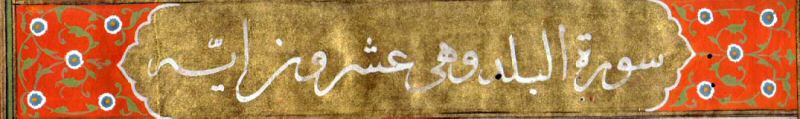 سورة البلد وهى عشرون اية